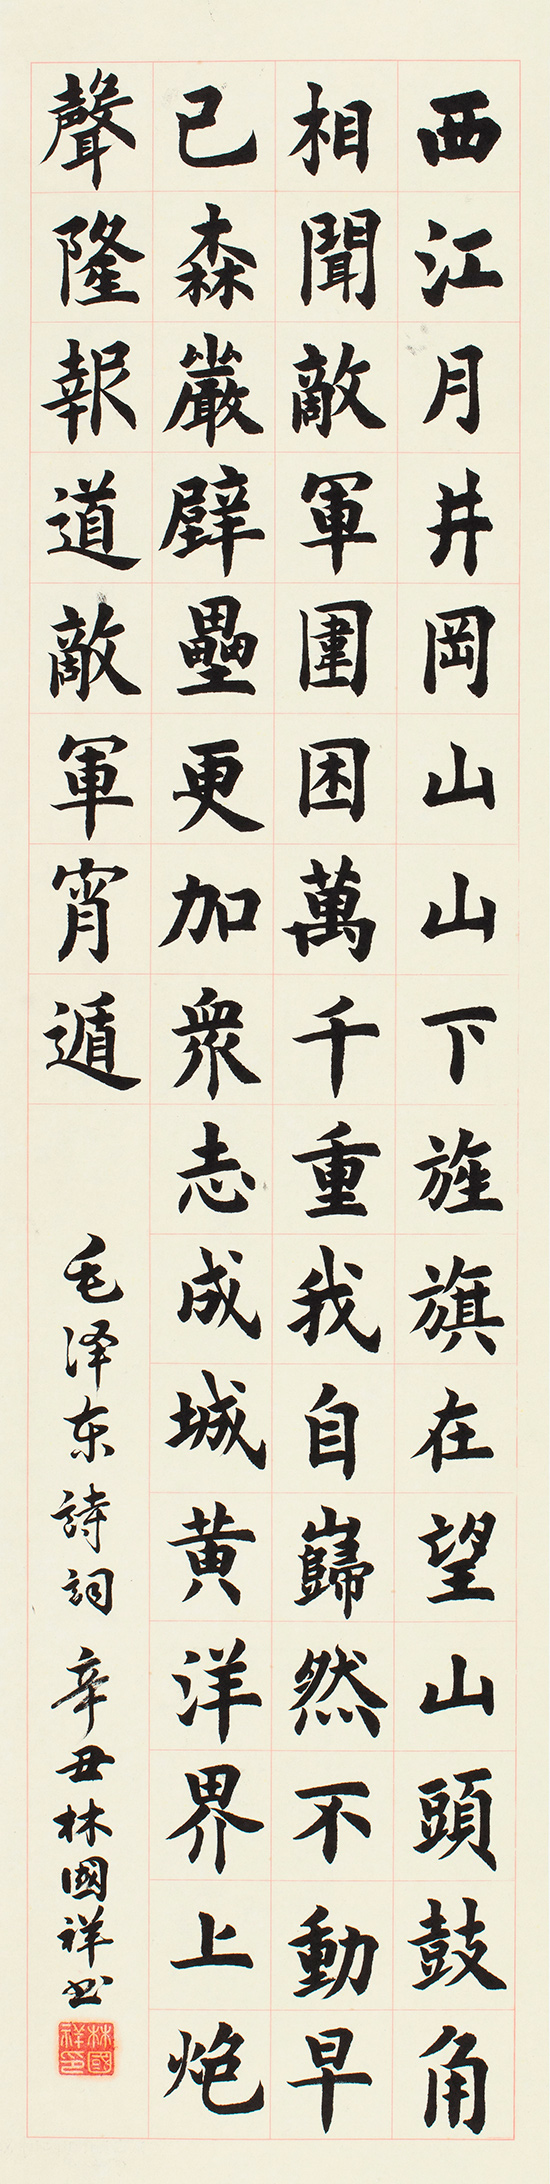 西江月井岡山山下旌旗在望山頭鼓角
相聞敵軍圍困萬千重我自巋然不動早
已森嚴壁壘更加衆志成城黄洋界上炮
聲隆報道敵軍宵遁
毛泽东詩詞 辛丑林國祥书
林國祥印